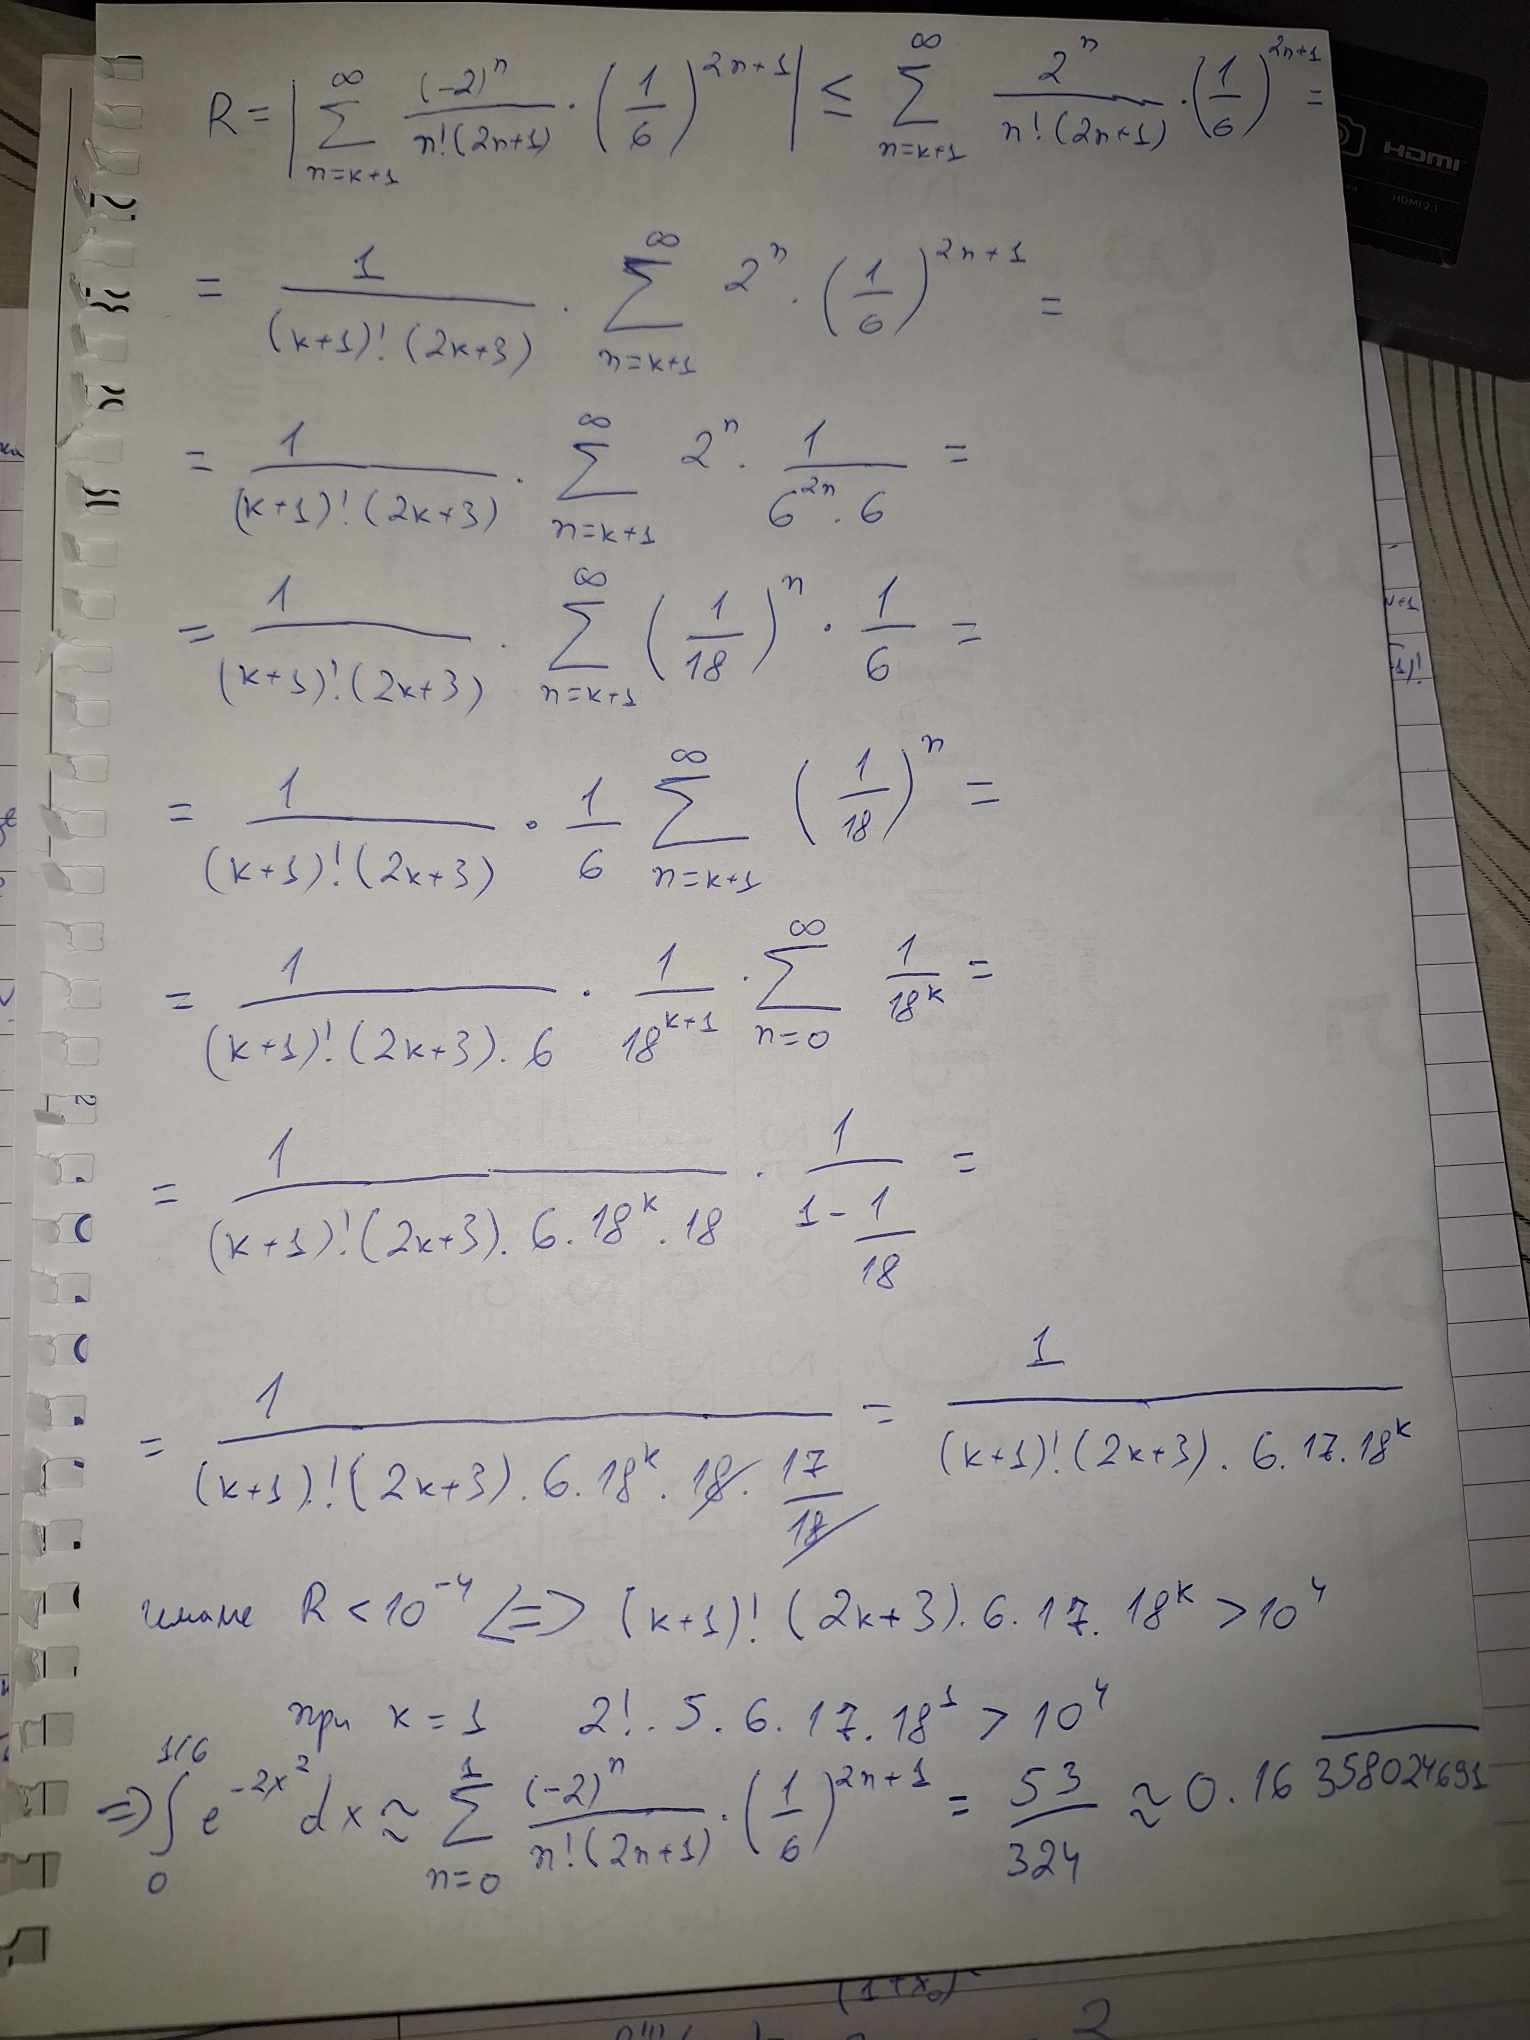 R = | ∑_{n=k+1}^{∞} (-2)^n / (n!(2n+1)) · (1/6)^{2n+1} | ≤ ∑_{n=k+1}^{∞} 2^n / (n!(2n+1)) · (1/6)^{2n+1} =
HDMI
HDMI 2.1
= 1 / ((k+1)!(2k+3)) · ∑_{n=k+1}^{∞} 2^n · (1/6)^{2n+1} =
= 1 / ((k+1)!(2k+3)) · ∑_{n=k+1}^{∞} 2^n · 1 / (6^{2n} · 6) =
= 1 / ((k+1)!(2k+3)) · ∑_{n=k+1}^{∞} (1/18)^n · 1/6 =
= 1 / ((k+1)!(2k+3)) · 1/6 ∑_{n=k+1}^{∞} (1/18)^n =
= 1 / ((k+1)!(2k+3) · 6) · 1 / 18^{k+1} · ∑_{n=0}^{∞} 1 / 18^k =
= 1 / ((k+1)!(2k+3) · 6 · 18^k · 18) · 1 / (1 - 1/18) =
= 1 / ((k+1)!(2k+3) · 6 · 18^k · 18 · 17/18) = 1 / ((k+1)!(2k+3) · 6 · 17 · 18^k)
имаме R < 10^{-4} <=> (k+1)!(2k+3) · 6 · 17 · 18^k > 10^4
при k = 1 2! · 5 · 6 · 17 · 18^1 > 10^4
=> ∫_0^{1/6} e^{-2x^2} dx ≈ ∑_{n=0}^{1} (-2)^n / (n!(2n+1)) · (1/6)^{2n+1} = 53/324 ≈ 0.16\overline{358024691}
(1+x_0)
2